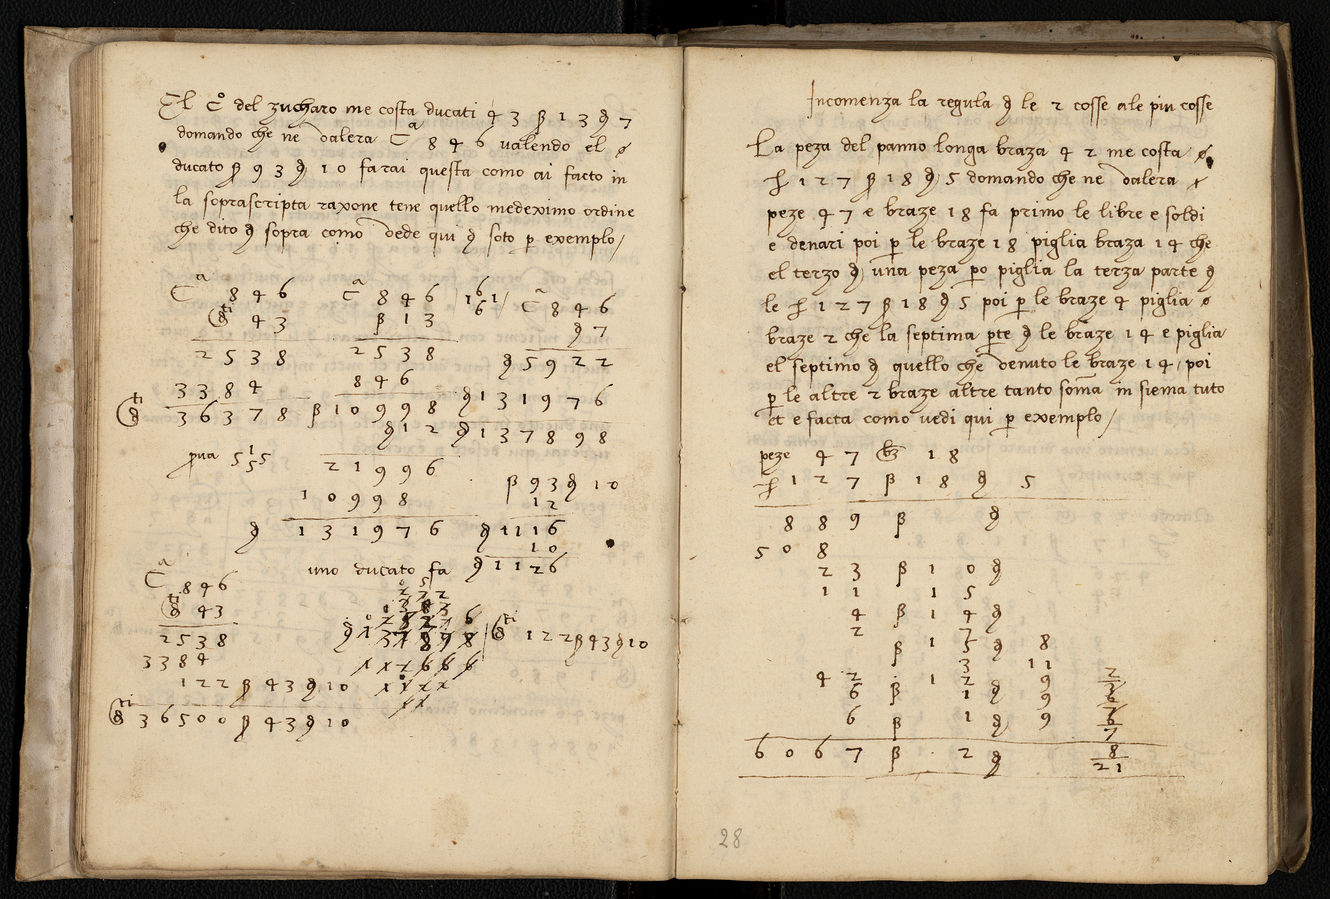 El Cº del zucharo me costa ducati 4 3 β 1 3 ϑ 7
domando che ne valera Cª 8 4 6 valendo el
ducato β 9 3 ϑ 1 0 farai questa como ai facto in
la soprascripta raxone tene quello medeximo ordine
che dito ϑ sopra como vede qui ϑ soto p exemplo/
Cª 8 4 6 Cª 8 4 6 Cª 8 4 6
4 3 β 1 3 ϑ 7
2 5 3 8 2 5 3 8 ϑ 5 9 2 2
3 3 8 4 8 4 6 ϑ 1 3 1 9 7 6
3 6 3 7 8 β 1 0 9 9 8 ϑ 1 3 7 8 9 8
ϑ 1 2
prva 5 5 5
2 1 9 9 6 β 9 3 ϑ 1 0
1 0 9 9 8 1 2
ϑ 1 3 1 9 7 6 ϑ 1 1 1 6
1 0
uno ducato fa ϑ 1 1 2 6
Cª 8 4 6
4 3
2 5 3 8 1 2 2 β 4 3 ϑ 1 0
3 3 8 4
1 2 2 β 4 3 ϑ 1 0
3 6 5 0 0 β 4 3 ϑ 1 0
Incomenza la regula ϑ le 2 cosse ale piu cosse
La peza del panno longa braza 4 2 me costa
1 2 7 β 1 8 ϑ 5 domando che ne valera
peze 4 7 e braze 1 8 fa primo le libre e soldi
e denari poi p le braze 1 8 piglia braza 1 4 che
el terzo ϑ una peza po piglia la terza parte ϑ
le 1 2 7 β 1 8 ϑ 5 poi p le braze 4 piglia
braze 2 che la septima pte ϑ le braze 1 4 e piglia
el septimo ϑ quello che venuto le braze 1 4 / poi
p le altre 2 braze altre tanto soma in siema tuto
et e facta como vedi qui p exemplo /
peze 4 7 bz 1 8
1 2 7 β 1 8 ϑ 5
8 8 9 β ϑ
5 0 8
2 3 β 1 0 ϑ
1 1 1 5
4 β 1 4 ϑ
2 7
β 1 5 ϑ 8
3 1 1
4 2 1 2 9 2
6 β 1 ϑ 9
6 β 1 ϑ 9 6/7
6 0 6 7 β 2 ϑ 8/21
28